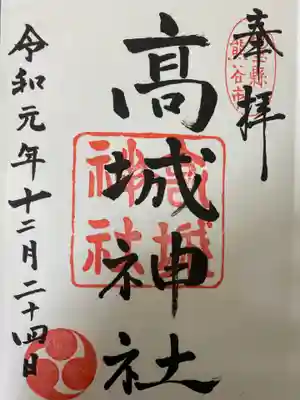 奉拝
埼玉縣
熊谷市
髙城神社
高城
神社
令和元年十二月二十四日